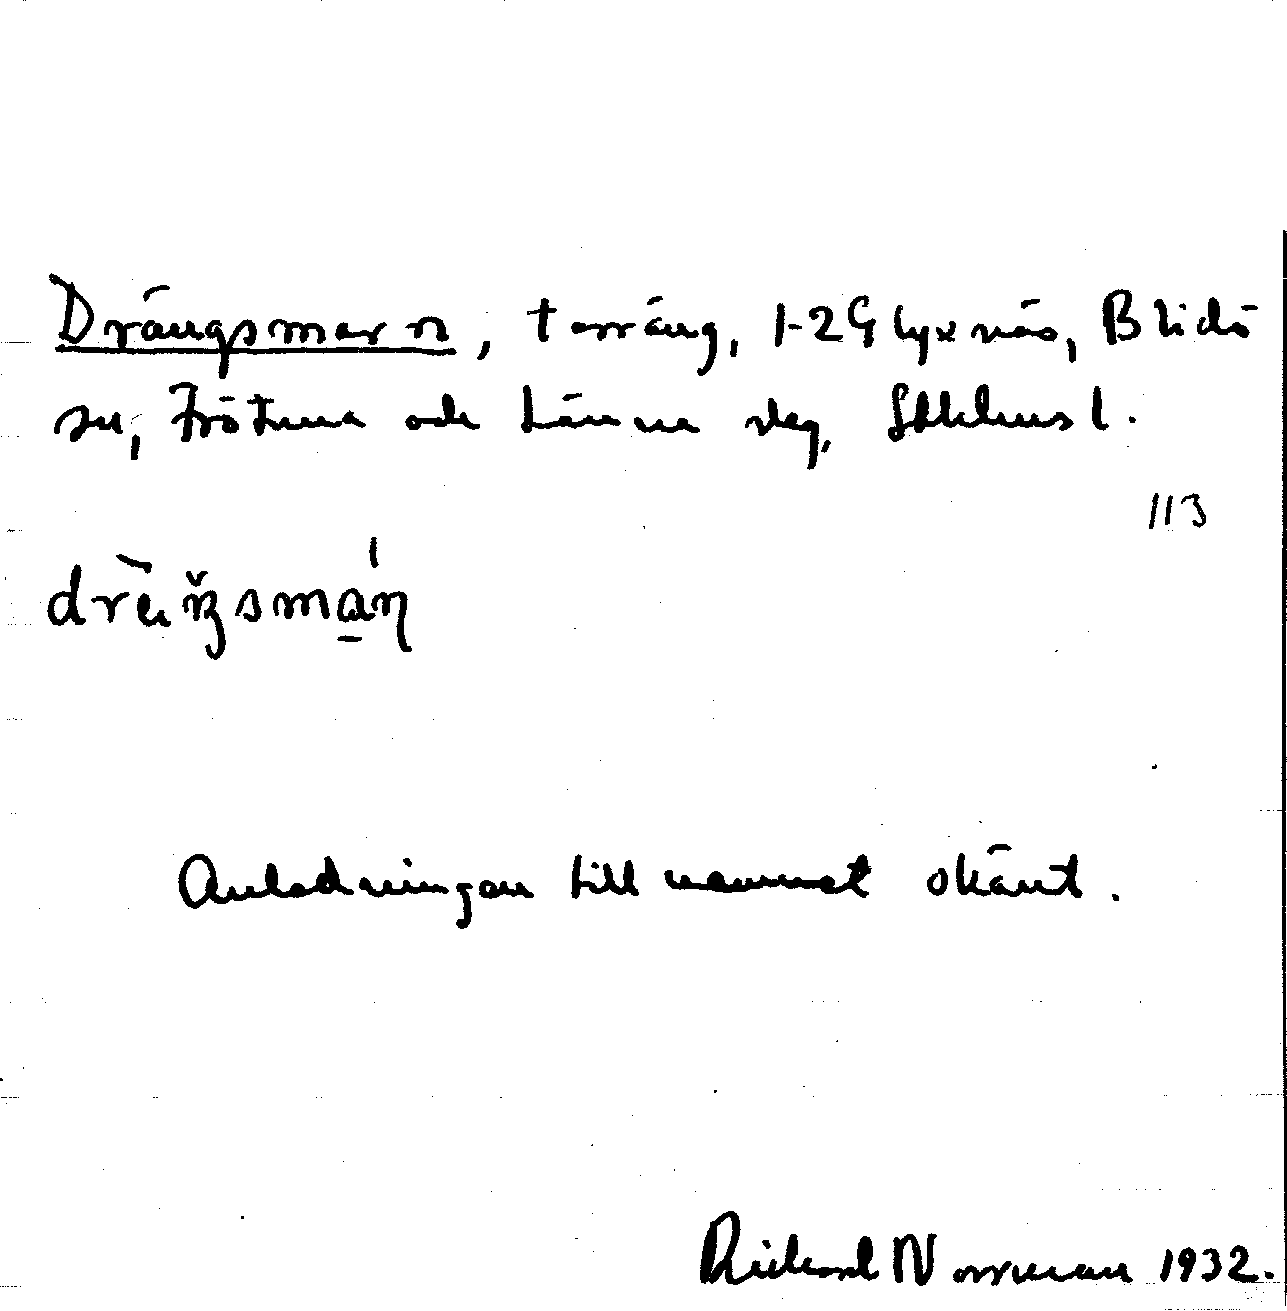 Drängsmarn, terräng, 1-2 Glyxnäs, Blidö
sn, Frötuna och Länna slg, Sthlms l.
113
Anledningen till namnet okänt.
Rickard Norrman 1932.